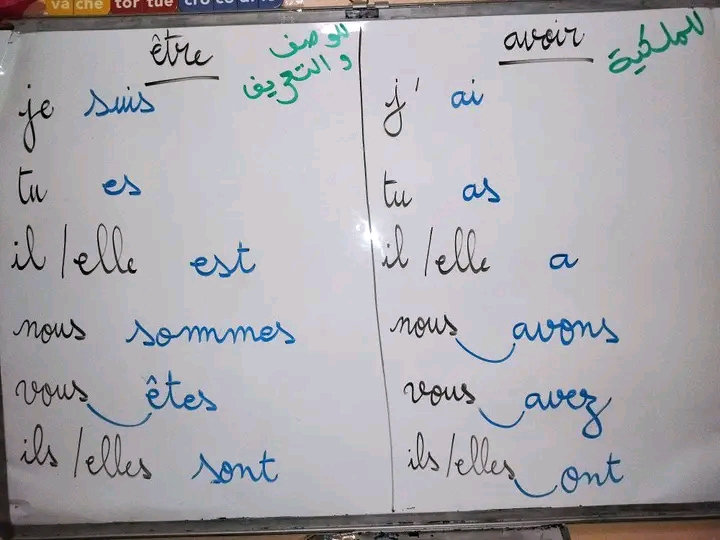 va che tor tue
être
للوصف
و التعريف
je suis
tu es
il /elle est
nous sommes
vous êtes
ils /elles sont
avoir
للملكية
j' ai
tu as
il /elle a
nous avons
vous avez
ils/elles ont